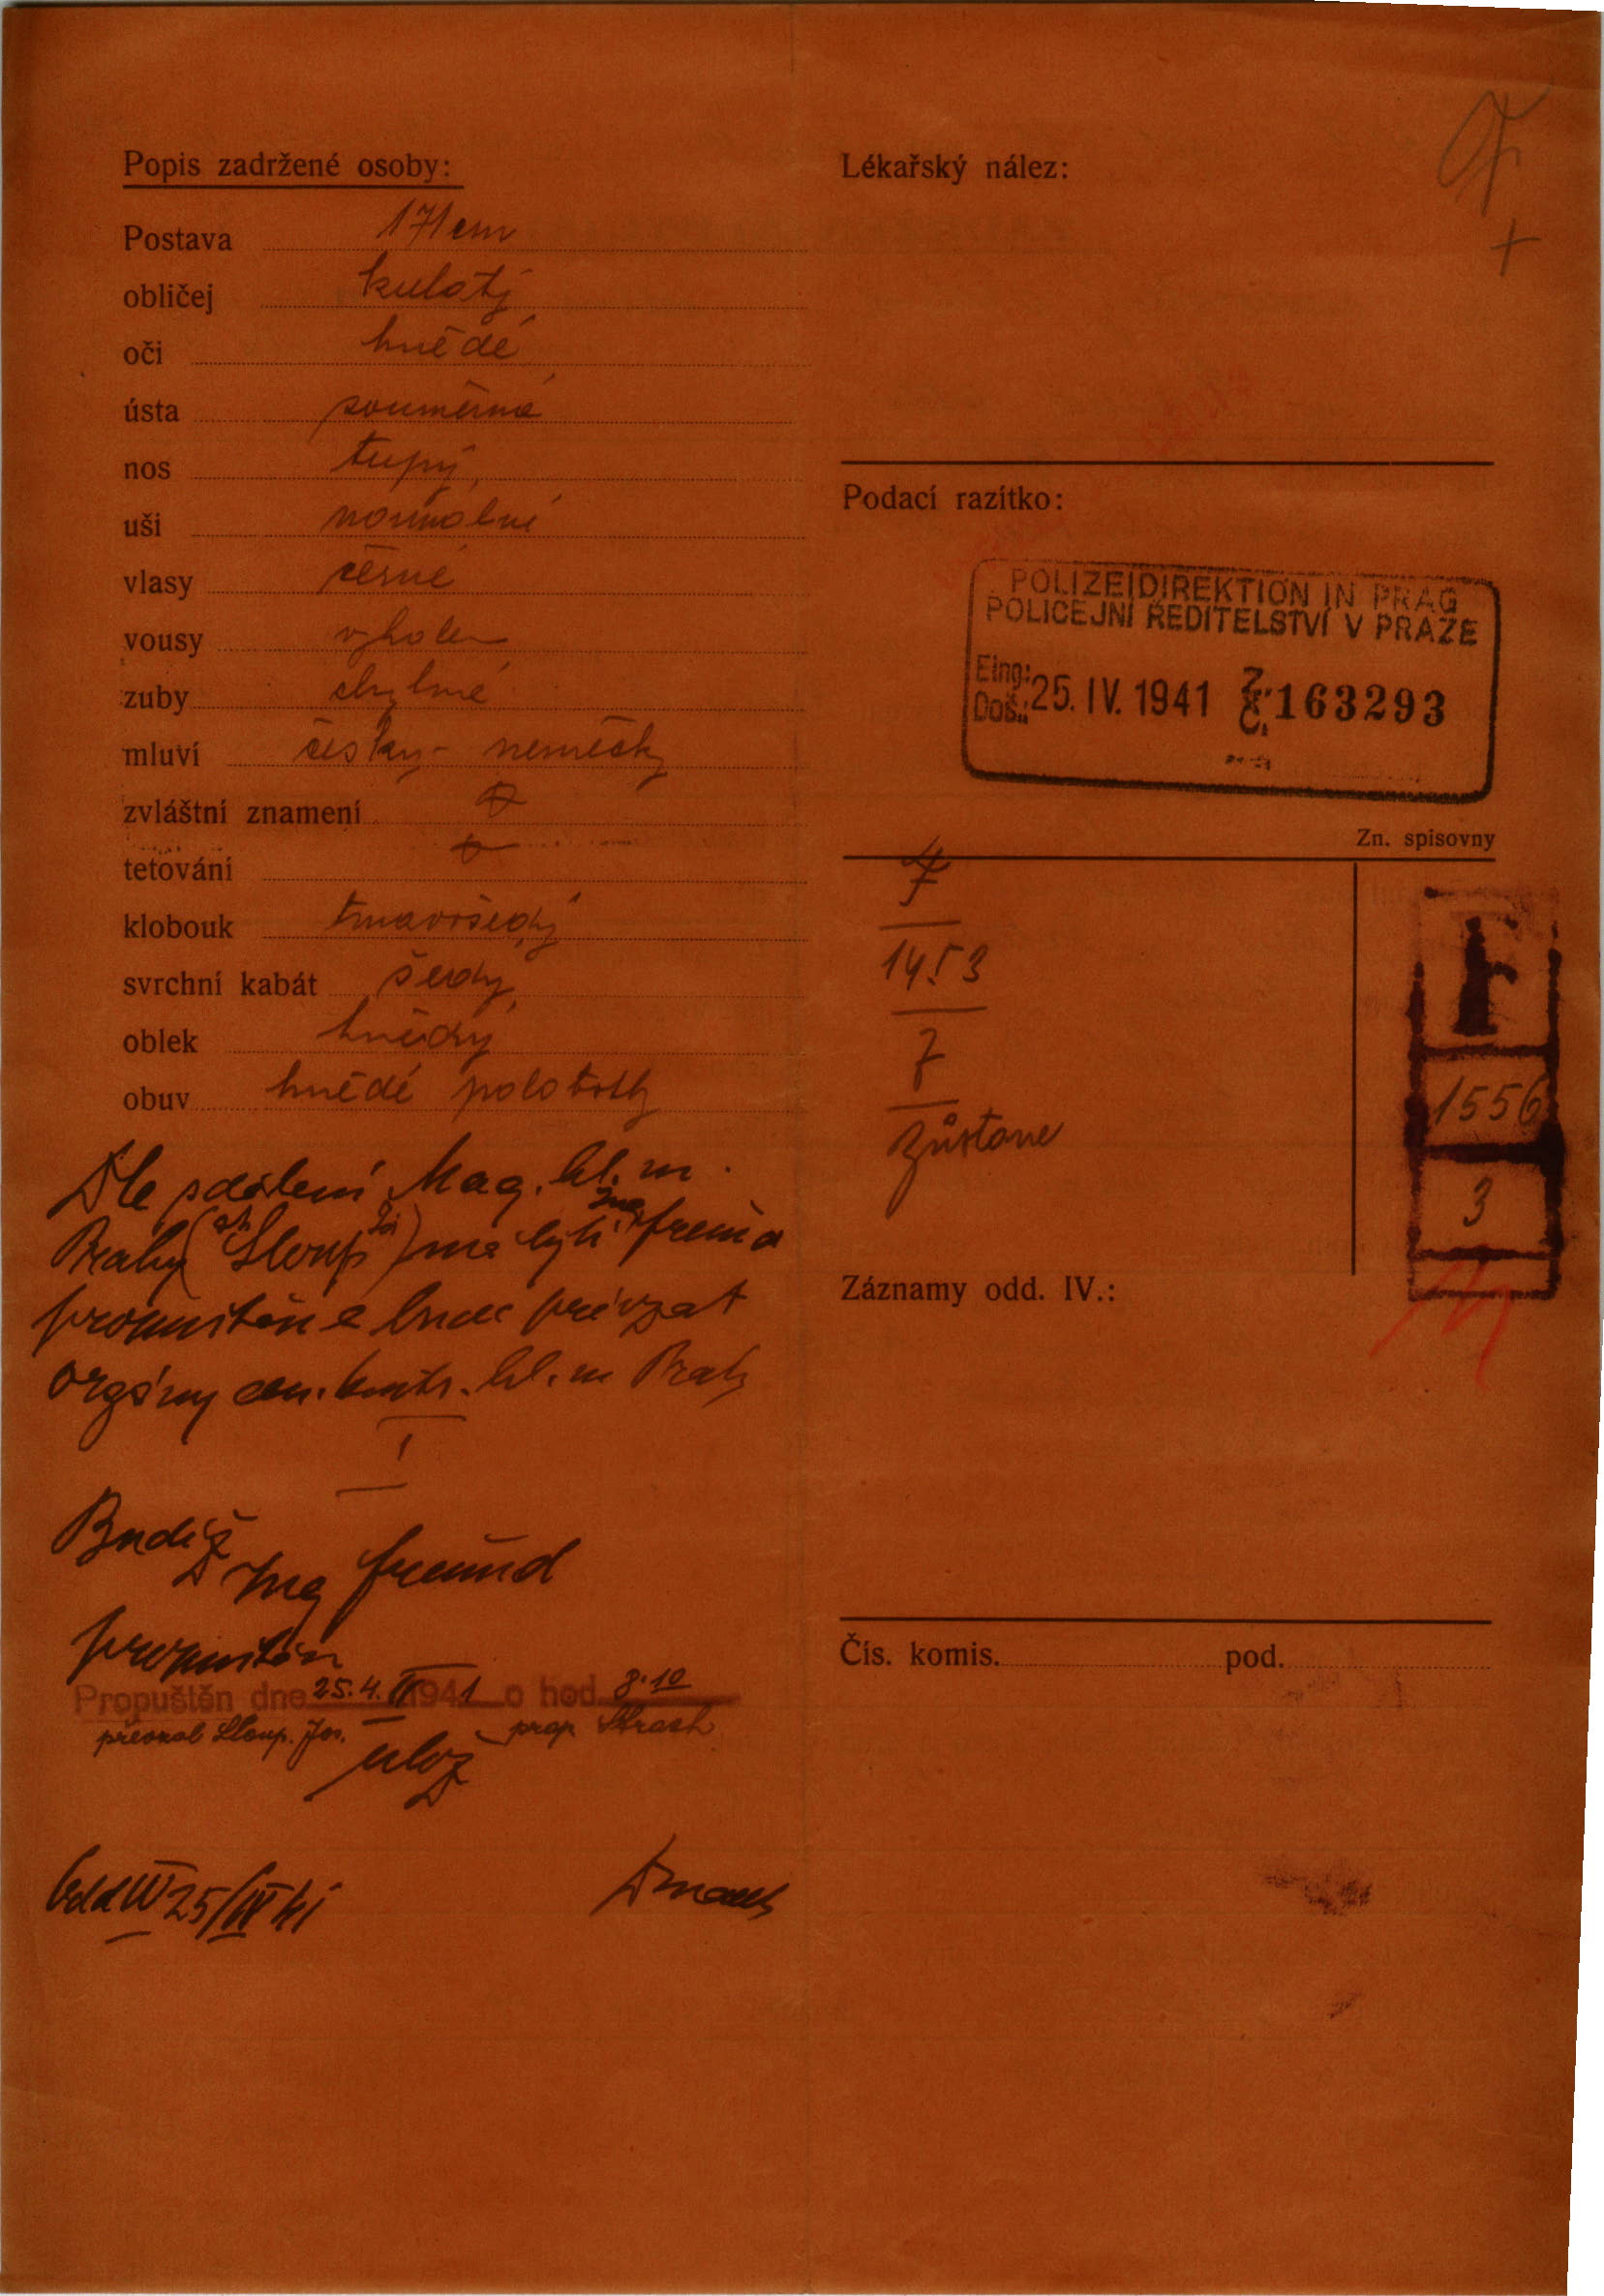 Popis zadržené osoby:
Postava 171 cm
obličej kulatý
oči hnědé
ústa souměrné
nos tupý
uši normální
vlasy černé
vousy vyholen
zuby chybné
mluví česky - německy
zvláštní znamení
tetování
klobouk tmavošedý
svrchní kabát šedý
oblek hnědý
obuv hnědé polobotky
Dle sdělení Mag. hl. m.
Prahy ( Sloup ) má býti Ing. Freund
propuštěn a bude převzat
orgány cen. kontr. hl. m. Prahy
I
Budiž
Ing Freund
propuštěn
Propuštěn dne 25.4. 1941 o hod 8.10
převzal Sloup. Jos. prap.
ulož
25/IV 41
Lékařský nález:
Podací razítko:
POLIZEIDIREKTION IN PRAG
POLICEJNÍ ŘEDITELSTVÍ V PRAZE
Eing:
Doš.: 25. IV. 1941 Z. Č. 163293
Zn. spisovny
7
1453
7
Zůstane
r
1556
3
Záznamy odd. IV.:
Čís. komis. pod.